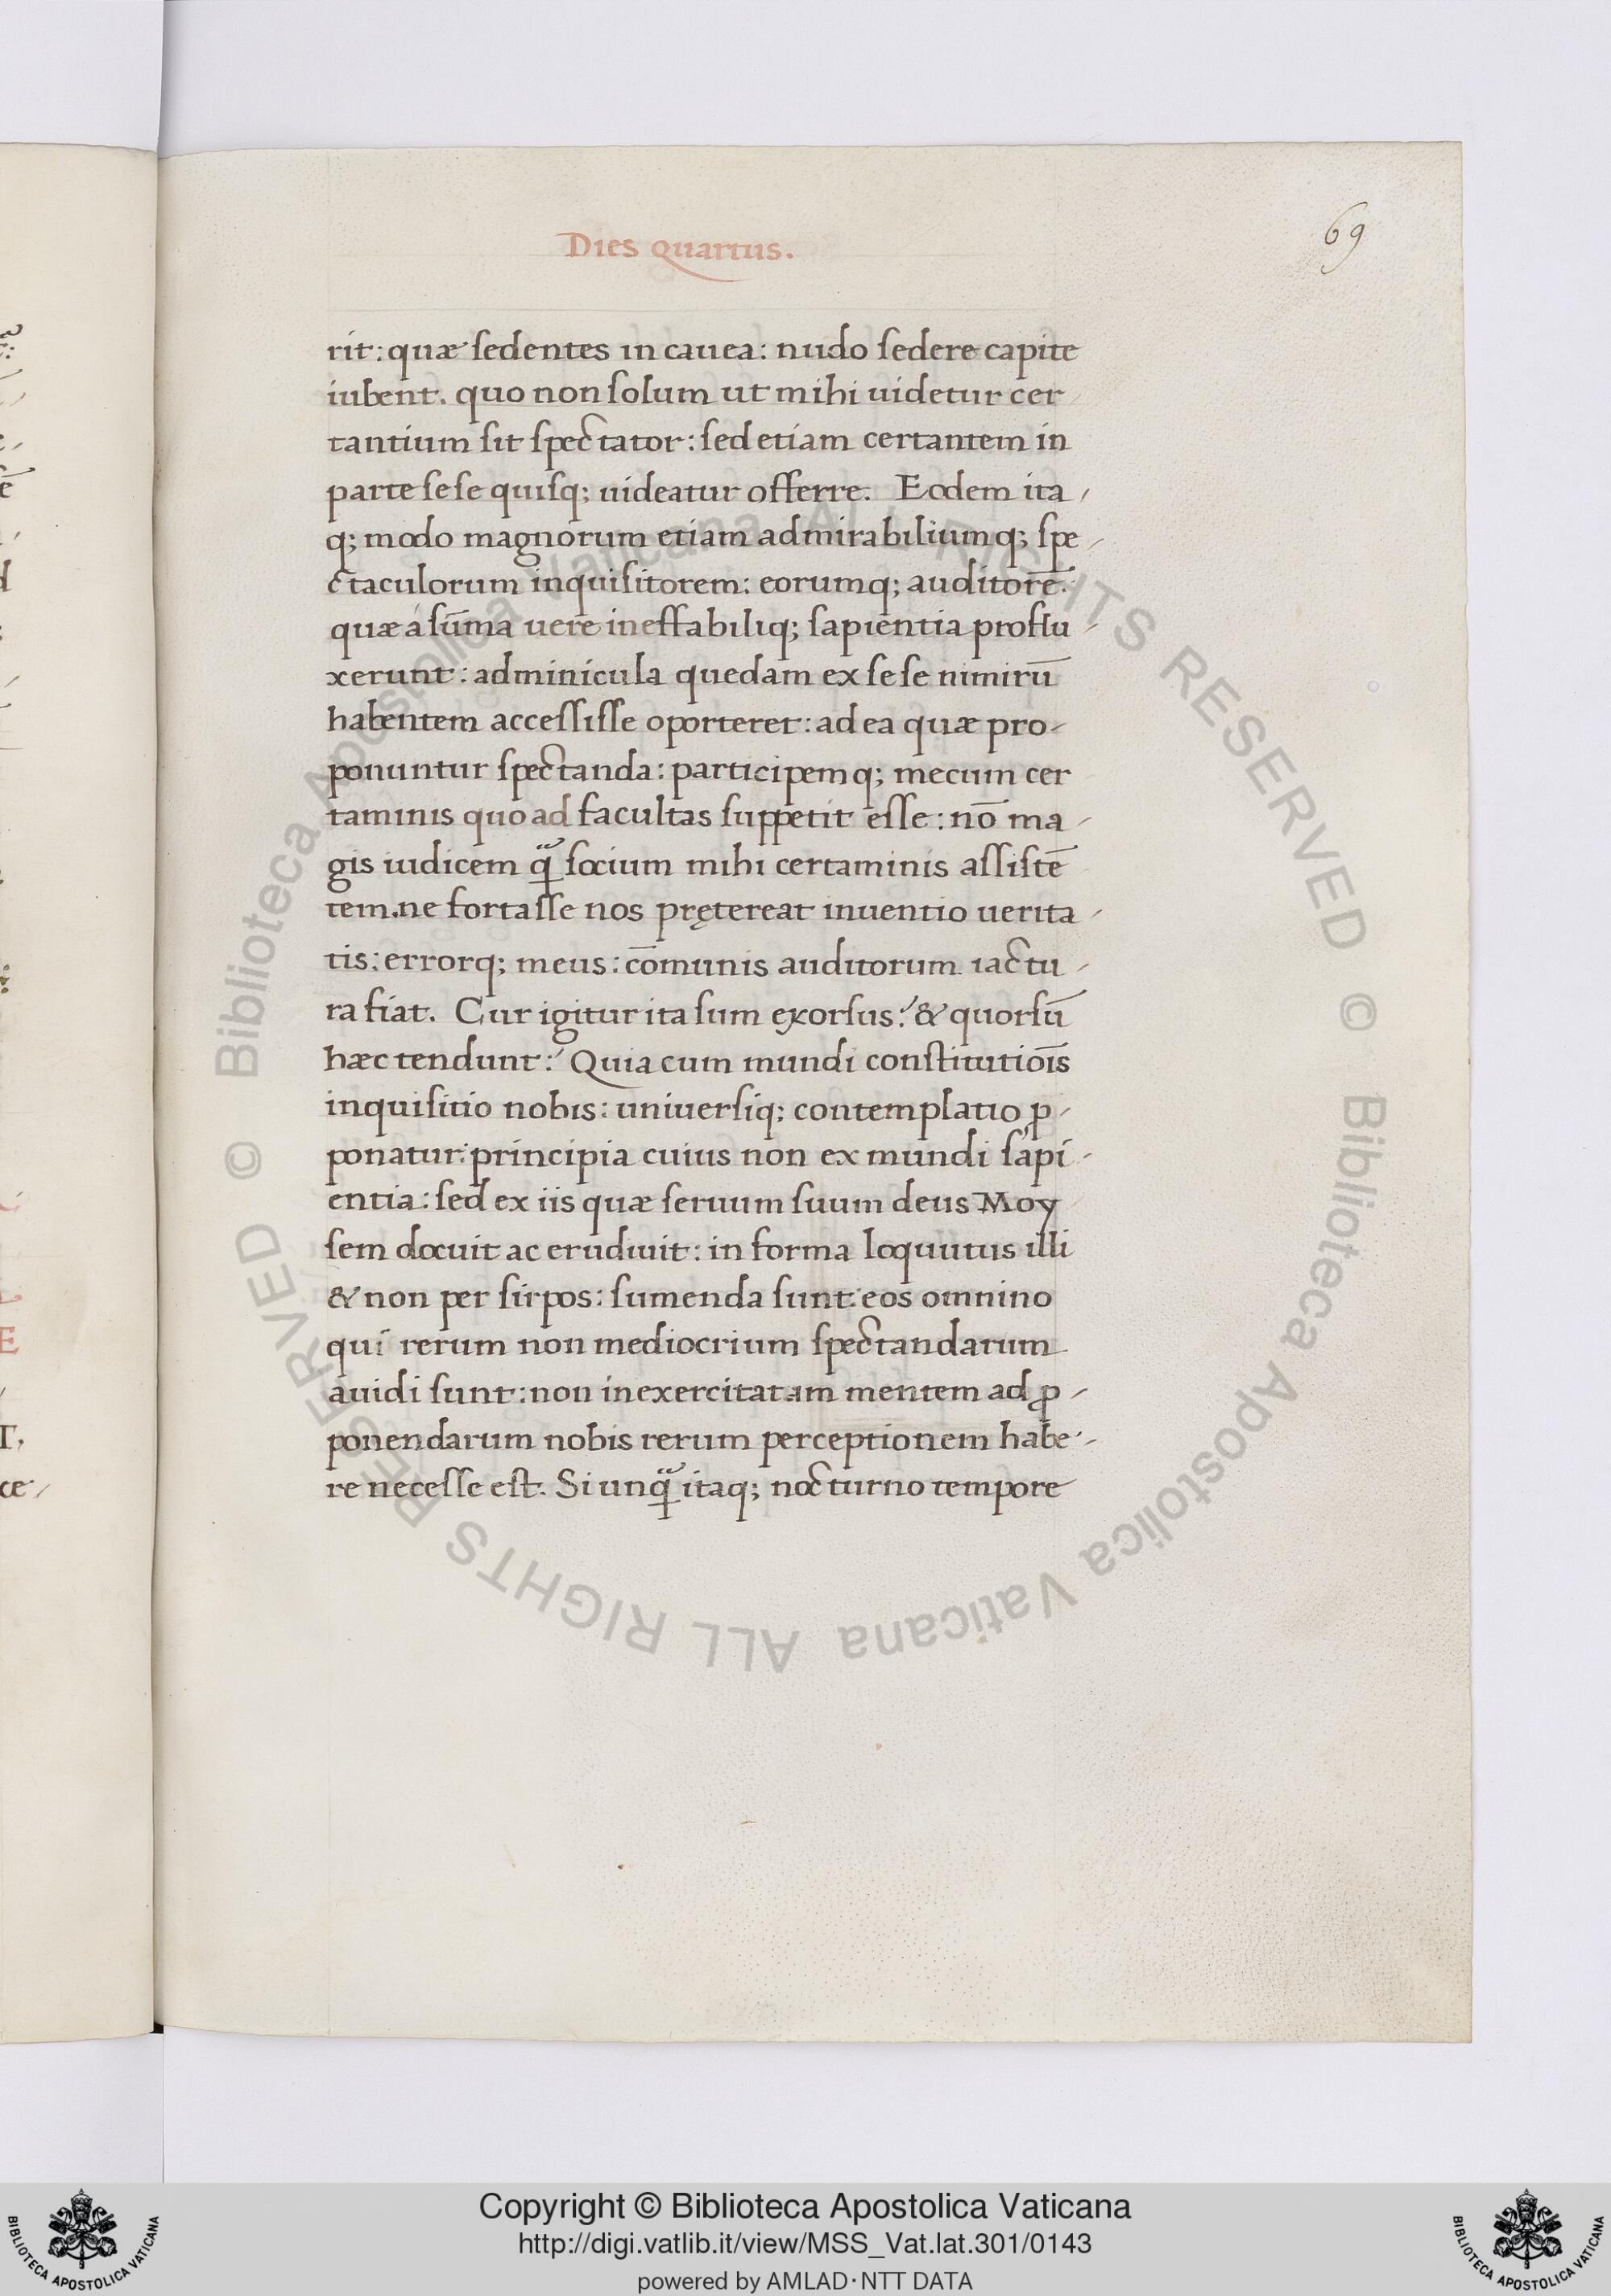 Dies quartus.
69
rit: quæ sedentes in cauea: nudo sedere capite
iubent. quo non solum ut mihi uidetur cer
tantium sit spectator: sed etiam certantem in
parte sese quisq; uideatur offerre. Eodem ita,
q; modo magnorum etiam admirabiliumq; spe-
ctaculorum inquisitorem: eorumq; auditorē:
quæ a sūma uere ineffabiliq; sapientia proflu-
xerunt: adminicula quedam ex sese nimirū
habentem accessisse oporteret: ad ea quæ pro-
ponuntur spectanda: participemq; mecum cer
taminis quoad facultas suppetit esse: nō ma-
gis iudicem q̃ socium mihi certaminis assistē
tem. ne fortasse nos prętereat inuentio uerita-
tis: errorq; meus: cōmunis auditorum iactu-
ra fiat. Cur igitur ita sum exorsus? & quorsū
hæc tendunt? Quia cum mundi constitutiōis
inquisitio nobis: uniuersiq; contemplatio ꝓ-
ponatur: principia cuius non ex mundi sapi-
entia: sed ex iis quæ seruum suum deus Moy
sem docuit ac erudiuit: in forma loquutus illi
& non per sirpos: sumenda sunt: eos omnino
qui rerum non mediocrium spectandarum
auidi sunt: non inexercitatam mentem ad ꝓ-
ponendarum nobis rerum perceptionem habe-
re necesse est. Si unq̃ itaq; nocturno tempore
Copyright © Biblioteca Apostolica Vaticana
http://digi.vatlib.it/view/MSS_Vat.lat.301/0143
powered by AMLAD·NTT DATA
BIBLIOTECA APOSTOLICA VATICANA
BIBLIOTECA APOSTOLICA VATICANA
© Biblioteca Apostolica Vaticana ALL RIGHTS RESERVED © Biblioteca Apostolica Vaticana ALL RIGHTS RESERVED